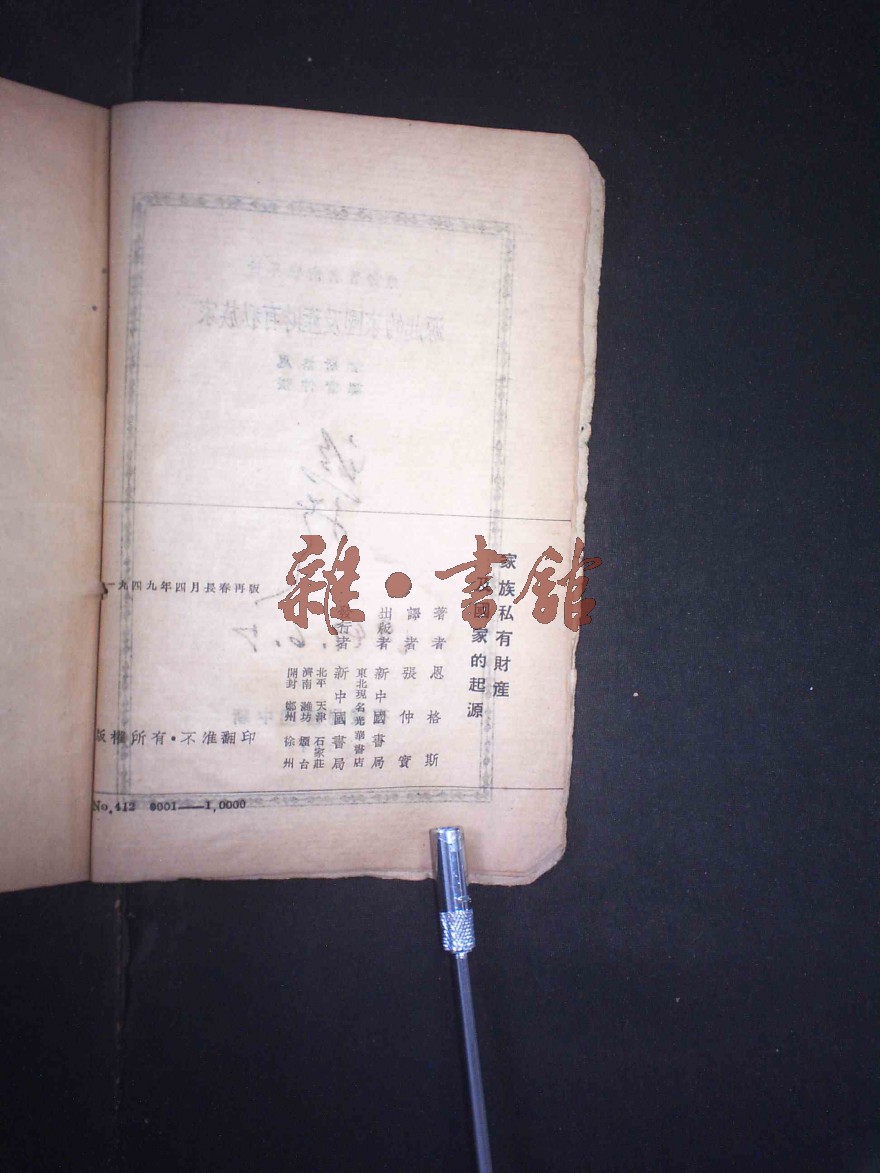 家族私有財產
及國家的起源
著者 恩格斯
譯者 張仲實
出版者 新中國書局
東北現名光華書店
發行者 新中國書局
北平 天津 石家莊
濟南 濰坊 煙台
開封 鄭州 徐州
一九四九年四月長春再版
版權所有·不准翻印
No.412 0001——1,0000
雜·書館